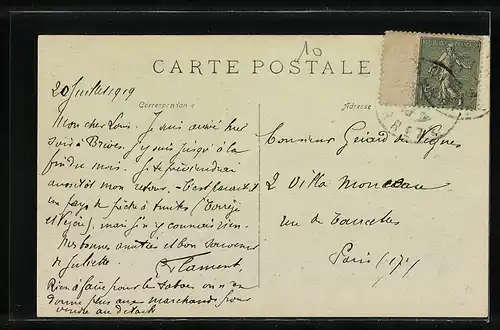 10
CARTE POSTALE
20 Juillet 1919
Correspondance
Adresse
Mon cher Louis. Je suis arrivé hier
soir à Brives. J'y suis jusqu'à la
fin du mois. Je te préviendrai
aussitôt mon retour. - C'est
pays de pêche à truites (Corrèze
et Vézère), mais je n'y connais rien.
Mes bonnes amitiés et bon souvenir
de Juliette.
Flament
Rien à faire pour le tabac on n'en
donne plus aux marchands pour
vendre au détail
Monsieur Gérard de Vignes
2 Villa Monceau
rue de Courcelles
Paris (17e)